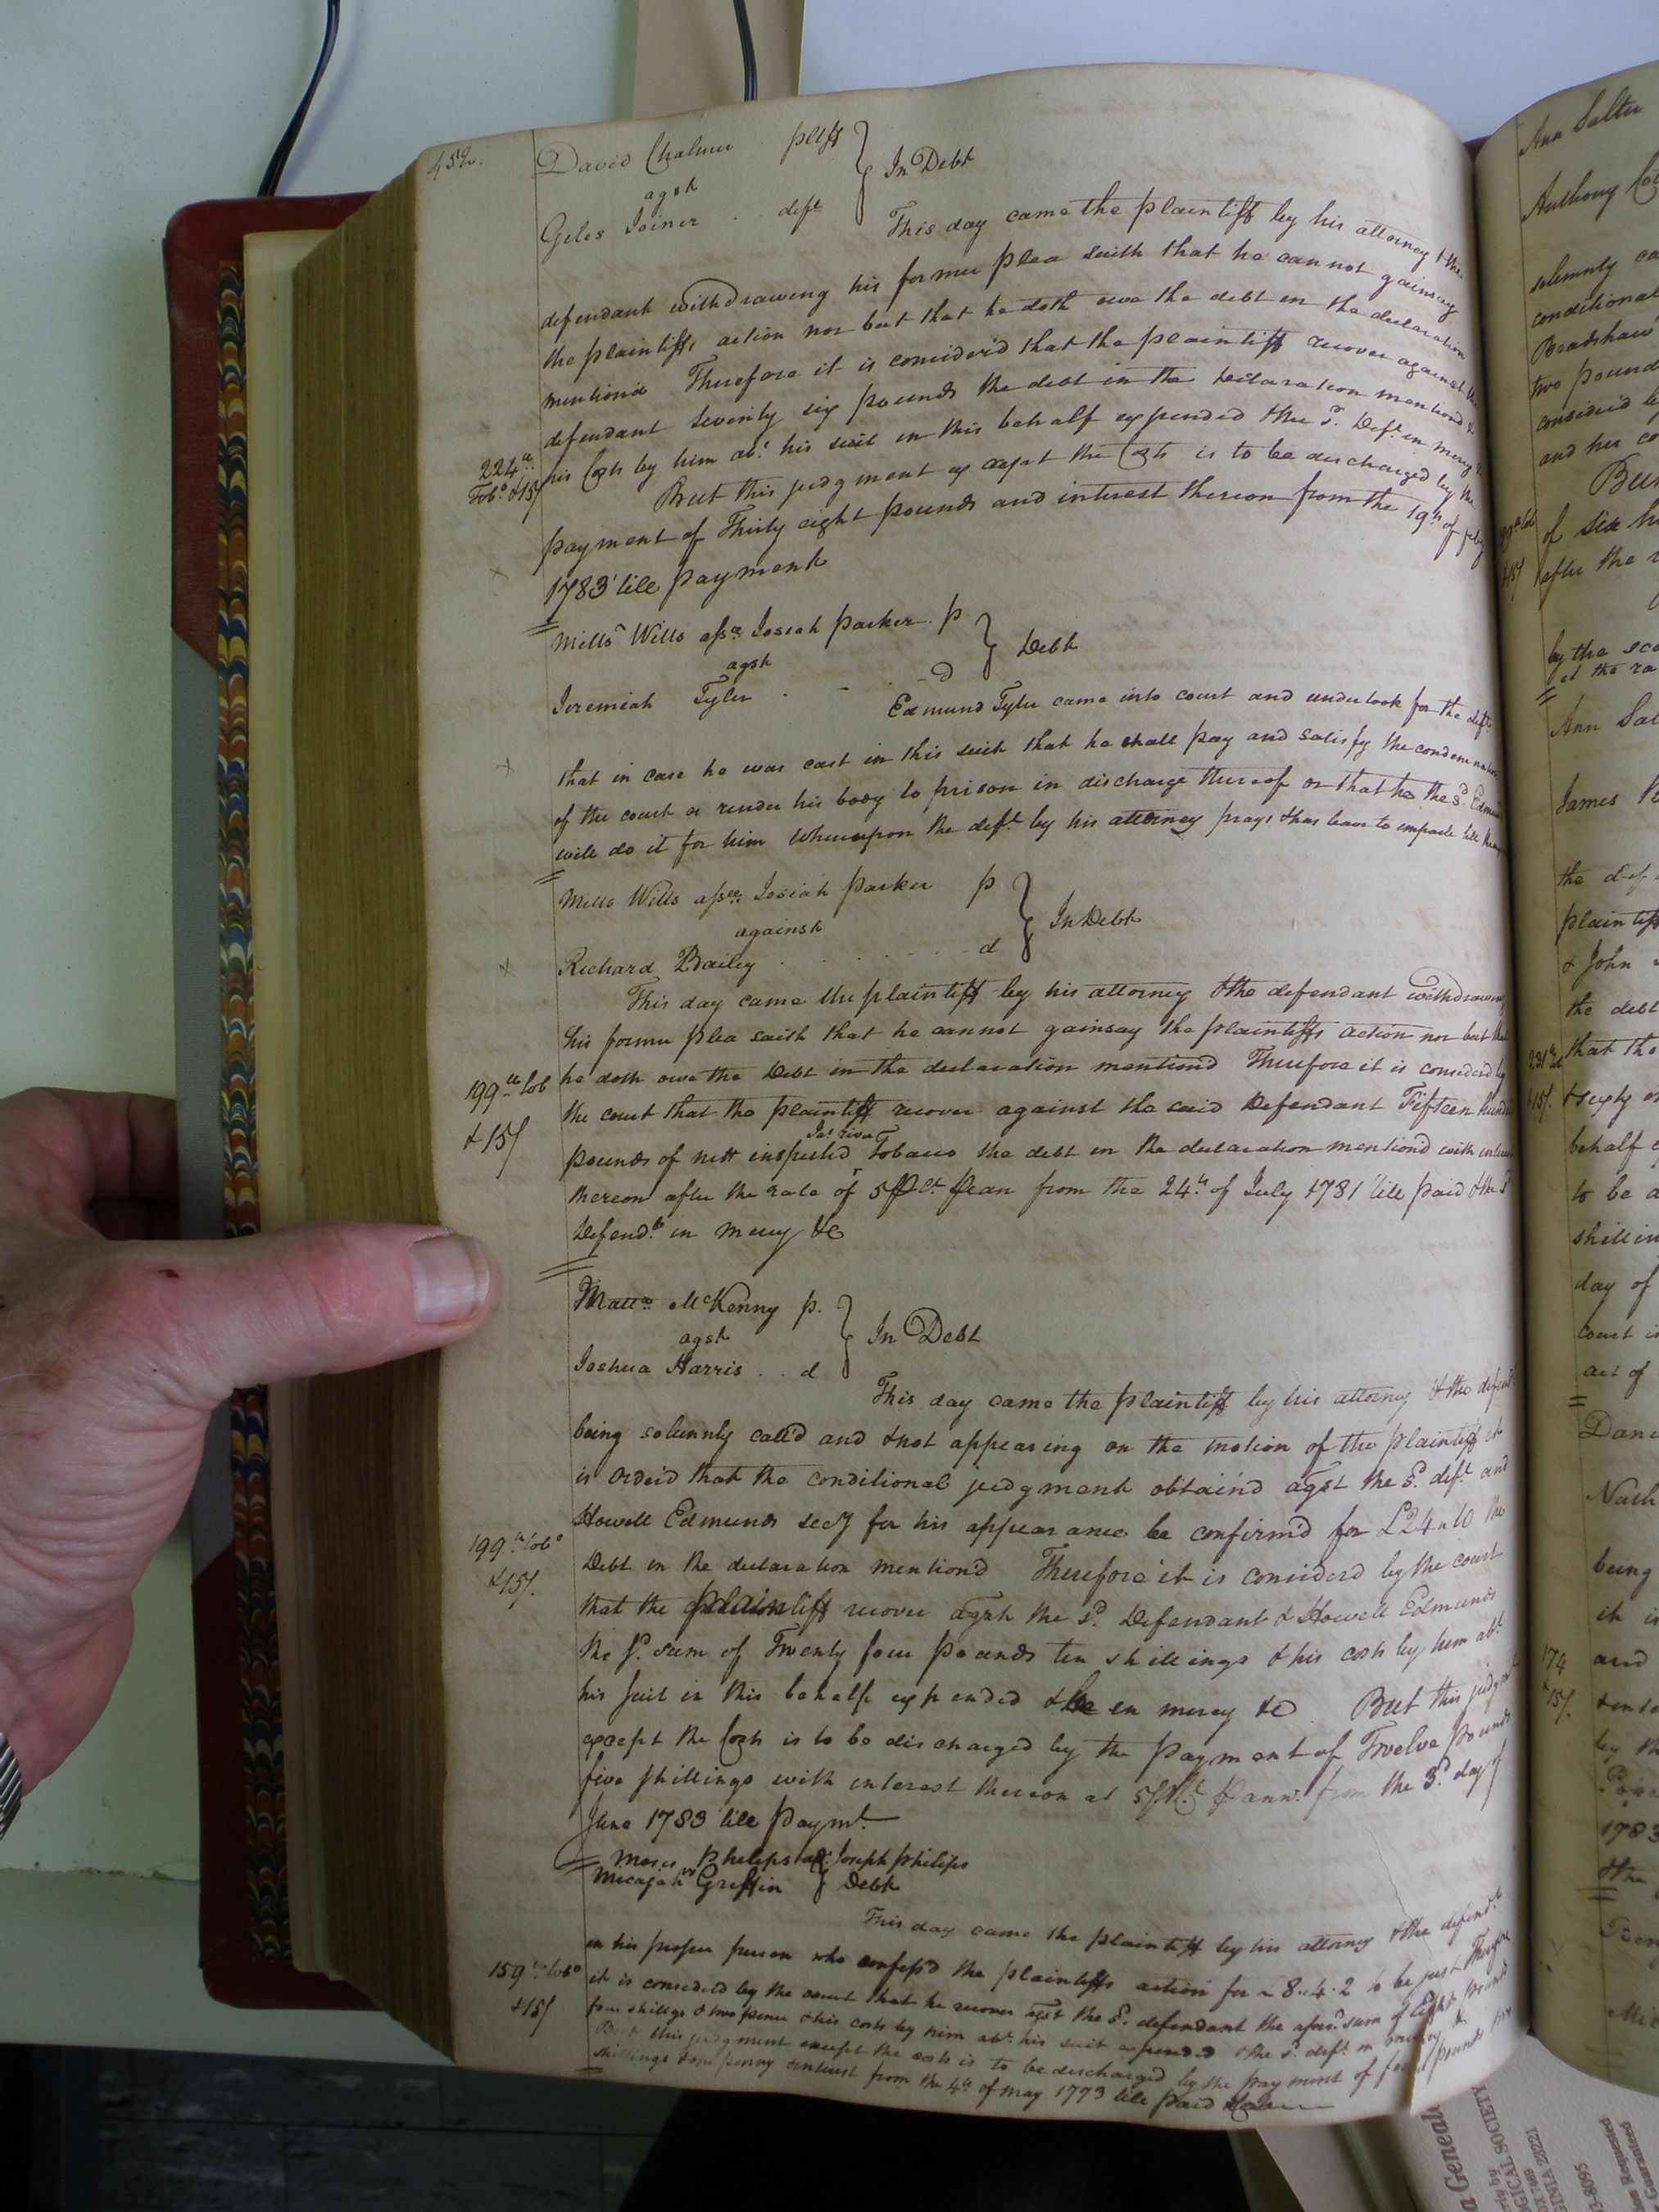 452.
David Chalmer pltff
agst
Giles Joiner . . deft
In Debt
This day came the plaintiff by his attorney & the
defendant withdrawing his former plea saith that he cannot gainsay
the plaintiffs action nor but that he doth owe the debt in the declaration
mentiond Therefore it is considerd that the plaintiff recover against the
defendant Seventy six pounds the debt in the Declaration mentiond &
his Costs by him abt his suit in this behalf expended & the sd. Deft. in mercy &c
224 lb
Tobo. & 15/
But this judgment except the Costs is to be discharged by the
payment of Thirty eight pounds and interest thereon from the 19th of feby
1783 till payment
Mills Wills assee Josiah Parker . p
agst
Jeremiah Tyler . - . - D
Debt
Edmund Tyler came into court and undertook for the deft
that in case he was cast in this suit that he shall pay and satisfy the condemnation
of the court or render his body to prison in discharge thereof or that he the sd. Edmund
will do it for him Whereupon the deft. by his attorney prays & has leave to imparle till the
Mills Wills assee. Josiah Parker p
against
Richard Bailey . . . . . . d
In Debt
This day came the plaintiff by his attorney & the defendant withdrawing
his former plea saith that he cannot gainsay the plaintiffs action nor but that
he doth owe the Debt in the declaration mentiond Therefore it is considerd by
199 lb tob
& 15/
the court that the plaintiff recover against the said Defendant Fifteen hundred
Jas. river
pounds of nett inspected Tobacco the debt in the declaration mentiond with interest
thereon after the rate of 5 pCt. p ann from the 24th of July 1781 till paid & the sd
Defendt. in mercy &c
Mattw. McKenny p.
agst
Joshua Harris . . d
In Debt
This day came the plaintiff by his attorney & the defendt
being solemnly call'd and & not appearing on the motion of the plaintiff it
is orderd that the conditional judgment obtain'd agst the sd. deft. and
Howell Edmunds secy for his appearance be confirm'd for £24 " 10 the
199 lb tobo
& 15/.
Debt in the declaration mention'd Therefore it is considerd by the court
that the plaintiff recover agst the sd. Defendant & Howell Edmunds
the sd. sum of Twenty four pounds ten shillings & his costs by him abt
his suit in this behalf expended & he in mercy &c But this judgt
except the Costs is to be discharged by the payment of Twelve pounds
five shillings with interest thereon at 5 pCt. p ann. from the 3d. day of
June 1783 till paymt.
Moses Phelips Joseph Philips
vs
Micajah Griffin
Debt
This day came the plaintiff by his attorney & the defendt
in his proper person who confess'd the plaintiffs action for 8 " 4 " 2 to be just Therefore
159 lb tobo
& 15/
it is considerd by the court that he recover agst the sd. defendant the aforesd. sum of Eight pounds
four shillgs & two pence & his costs by him abt. his suit expended & the sd. deft. in mercy &c
But this judgment except the costs is to be discharged by the payment of four pounds two
shillings & one penny & interest from the 4th of may 1773 till paid
Ann Salter
Anthony
solemnly
conditional
Bradshaw
two pound
considerd by
and her co
But
of six
after the
by the
at the ra
Ann Sal
James
the def
plaintiff
& John
the debt
that the
& 15/.
behalf
to be
shillin
day of
court
act of
Dan
Nath
being
it is
174
& 15/.
and
by th
1783
& the
Ben
Mic
Geneal
SOCIETY